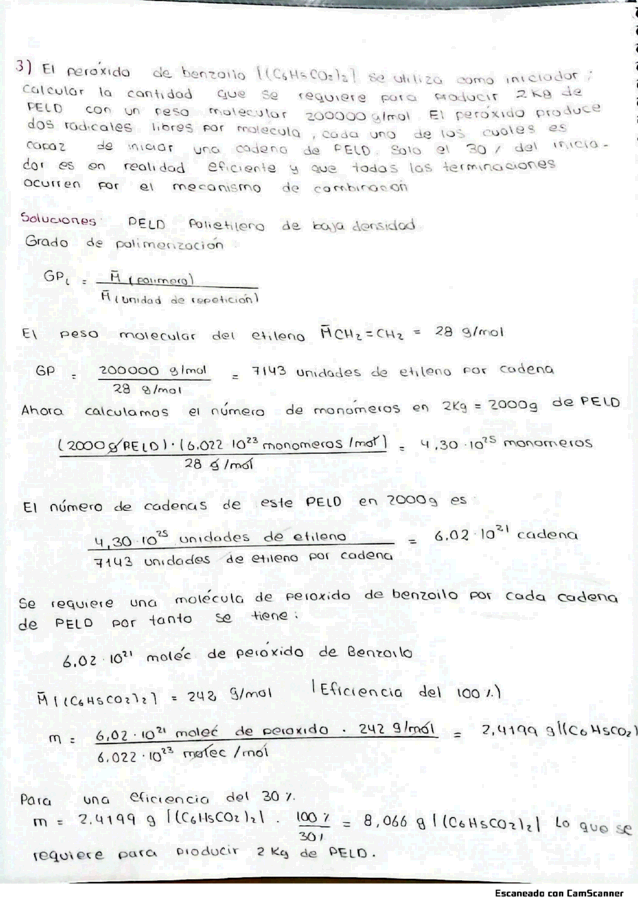 3) El peróxido de benzoilo [(C6H5CO2)2] se utiliza como iniciador;
calcular la cantidad que se requiere para producir 2 Kg de
PELD con un peso molecular 200000 g/mol. El peróxido produce
dos radicales libres por molécula, cada uno de los cuales es
capaz de iniciar una cadena de PELD. Solo el 30% del inicia-
dor es en realidad eficiente y que todas las terminaciones
ocurren por el mecanismo de combinación
Soluciones: PELD Polietileno de baja densidad
Grado de polimerización
GPi = M̄ (polimero) / M̄ (unidad de repetición)
El peso molecular del etileno M̄ CH2=CH2 = 28 g/mol
GP = 200000 g/mol / 28 g/mol = 7143 unidades de etileno por cadena
Ahora calculamos el número de monómeros en 2Kg = 2000g de PELD
(2000 g PELD) · (6.022 10^23 monomeros /mol) / 28 g /mol = 4,30 · 10^25 monomeros
El número de cadenas de este PELD en 2000g es
4,30 · 10^25 unidades de etileno / 7143 unidades de etileno por cadena = 6.02 · 10^21 cadena
Se requiere una molécula de peroxido de benzoilo por cada cadena
de PELD por tanto se tiene:
6.02 · 10^21 moléc de peróxido de Benzoilo
M̄ [(C6H5CO2)2] = 242 g/mol (Eficiencia del 100%)
m = 6,02 · 10^21 molec de peroxido · 242 g/mol / 6.022 · 10^23 molec /mol = 2,4199 g [(C6H5CO2)
Para una eficiencia del 30%.
m = 2.4199 g [(C6H5CO2)2] · 100% / 30% = 8,066 g [(C6H5CO2)2] Lo que se
requiere para producir 2 Kg de PELD.
Escaneado con CamScanner